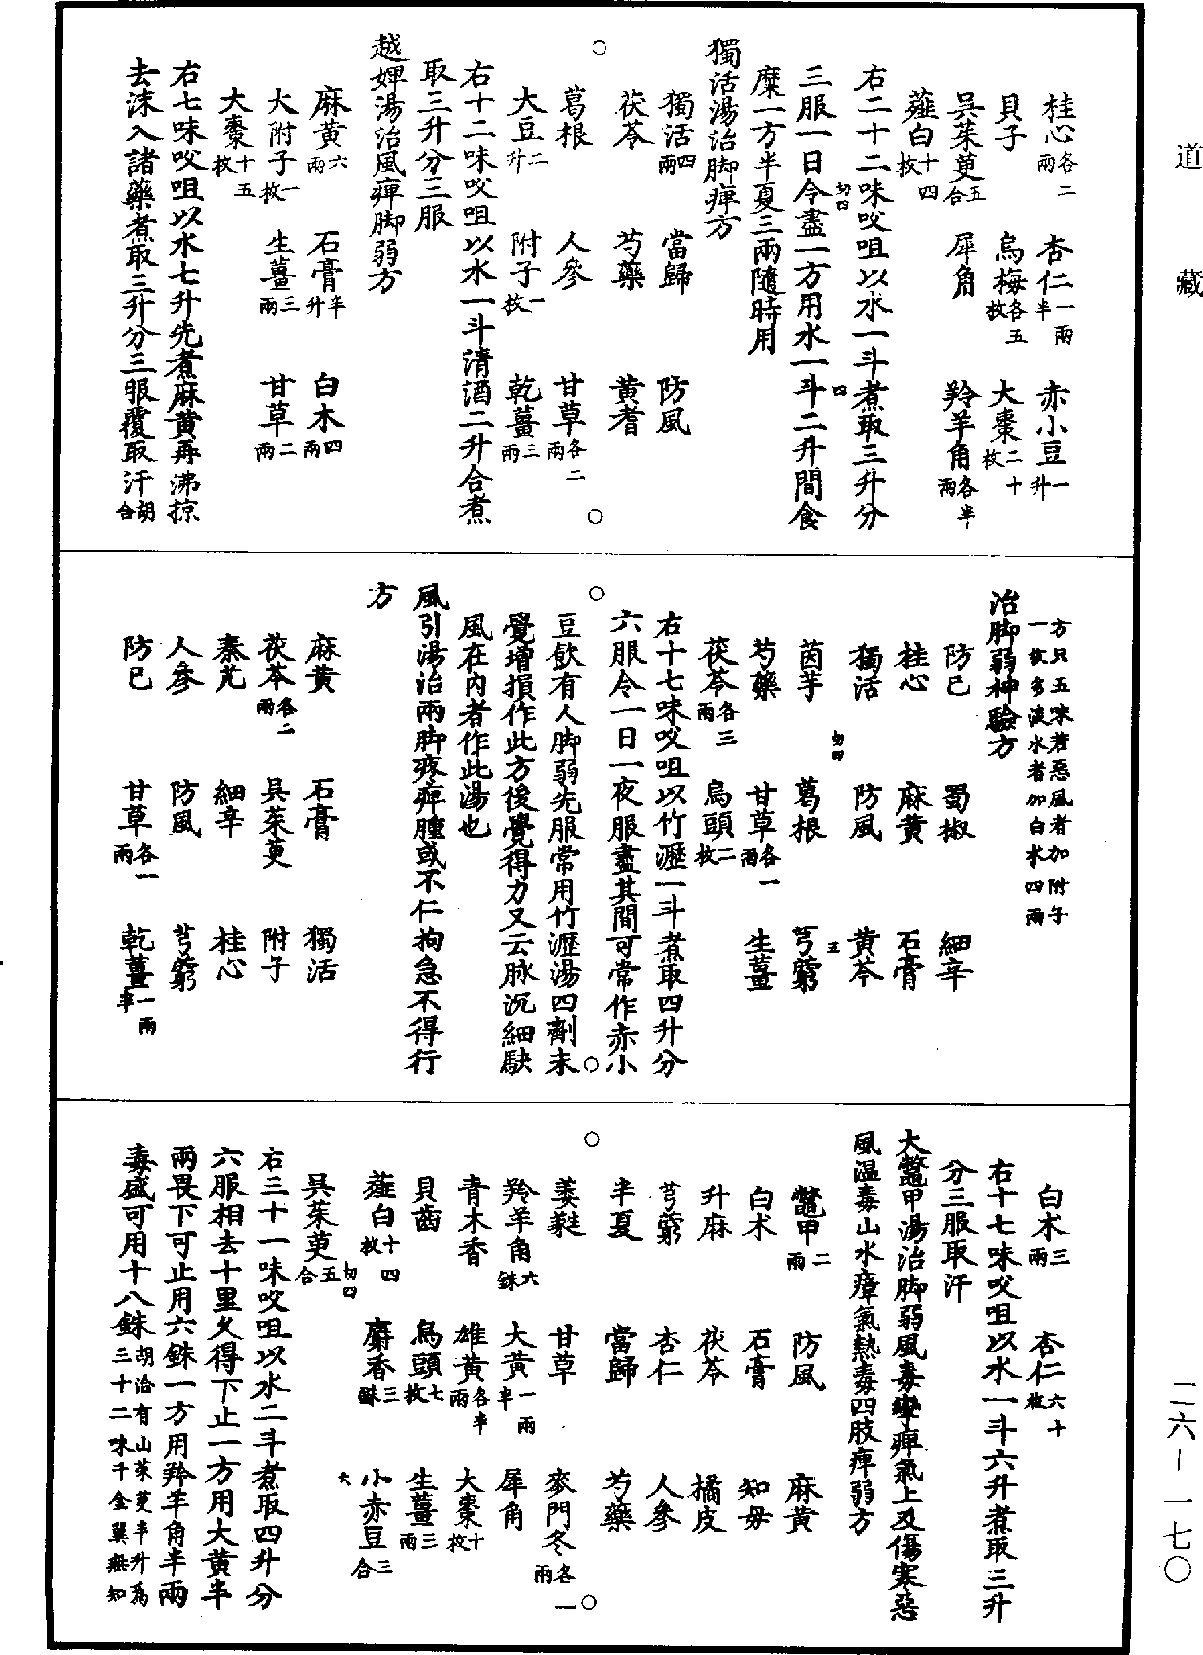 道藏
桂心各二兩 杏仁一兩半 赤小豆一升
貝子 烏梅各五枚 大棗二十枚
吳茱萸五合 犀角 羚羊角各半兩
薤白十四枚
右二十二味㕮咀以水一斗煮取三升分
三服一日令盡一方用水一斗二升間食
糜一方半夏三兩隨時用
獨活湯治脚痺方
獨活四兩 當歸 防風
茯苓 芍藥 黃耆
葛根 人參 甘草各二兩
大豆二升 附子一枚 乾薑三兩
右十二味㕮咀以水一斗清酒二升合煮
取三升分三服
越婢湯治風痺脚弱方
麻黃六兩 石膏半升 白朮四兩
大附子一枚 生薑三兩 甘草二兩
大棗十五枚
右七味㕮咀以水七升先煮麻黃再沸掠
去沫入諸藥煮取三升分三服覆取汗胡洽
方只五味若惡風者加附子
一枚多淡水者加白朮四兩
治脚弱神驗方
防已 蜀椒 細辛
桂心 麻黃 石膏
獨活 防風 黃芩
茵芋 葛根 芎藭
芍藥 甘草各一兩 生薑
茯苓各三兩 烏頭二枚
右十七味㕮咀以竹瀝一斗煮取四升分
六服令一日一夜服盡其間可常作赤小
豆飲有人脚弱先服常用竹瀝湯四劑未
覺增損作此方後覺得力又云脉沉細駃
風在內者作此湯也
風引湯治兩脚疼痺腫或不仁拘急不得行
方
麻黃 石膏 獨活
茯苓各二兩 吳茱萸 附子
秦艽 細辛 桂心
人參 防風 芎藭
防已 甘草各一兩 乾薑一兩半
白朮三兩 杏仁六十枚
右十七味㕮咀以水一斗六升煮取三升
分三服取汗
大鼈甲湯治脚弱風毒攣痺氣上及傷寒惡
風溫毒山水瘴氣熱毒四肢痺弱方
鼈甲二兩 防風 麻黃
白朮 石膏 知母
升麻 茯苓 橘皮
芎藭 杏仁 人參
半夏 當歸 芍藥
萎蕤 甘草 麥門冬各一兩
羚羊角六銖 大黃一兩半 犀角
青木香 雄黃各半兩 大棗十枚
貝齒 烏頭七枚 生薑三兩
薤白十四枚 麝香三銖 小赤豆三合
吳茱萸五合
右三十一味㕮咀以水二斗煮取四升分
六服相去十里久得下止一方用大黃半
兩畏下可止用六銖一方用羚羊角半兩
毒盛可用十八銖胡洽有山茱萸半升爲三十二味千金翼無知
二六—一七〇